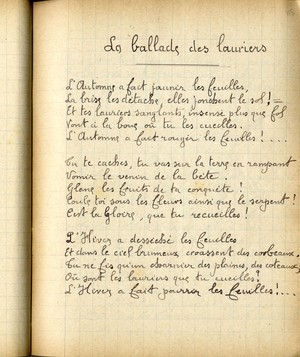 La ballade des lauriers
L'Automne a fait jaunir les feuilles,
La brise les détache, elles jonchent le sol ! =
Et tes lauriers sanglants, insensé plus que fol
Vont à la boue où tu les cueilles.
L'Automne a fait rougir les feuilles ! ....
Tu te caches, tu vas sur la terre en rampant
Vomir le venin de la bête.
Glane les fruits de ta conquête !
Roule toi sous les fleurs ainsi que le serpent !
C'est la Gloire, que tu recueilles !
L'Hiver a desséché les feuilles
Et dans le ciel brumeux croassent des corbeaux.
Tu ne fis qu'un charnier des plaines, des coteaux,
Où sont les lauriers que tu cueilles ?
L'Hiver a fait pourrir les feuilles ! ...